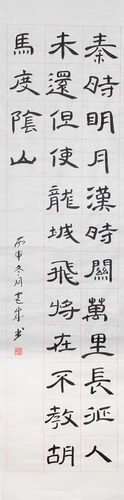 秦時明月漢時關萬里長征人
未還但使龍城飛將在不教胡
馬度陰山
丙申冬月